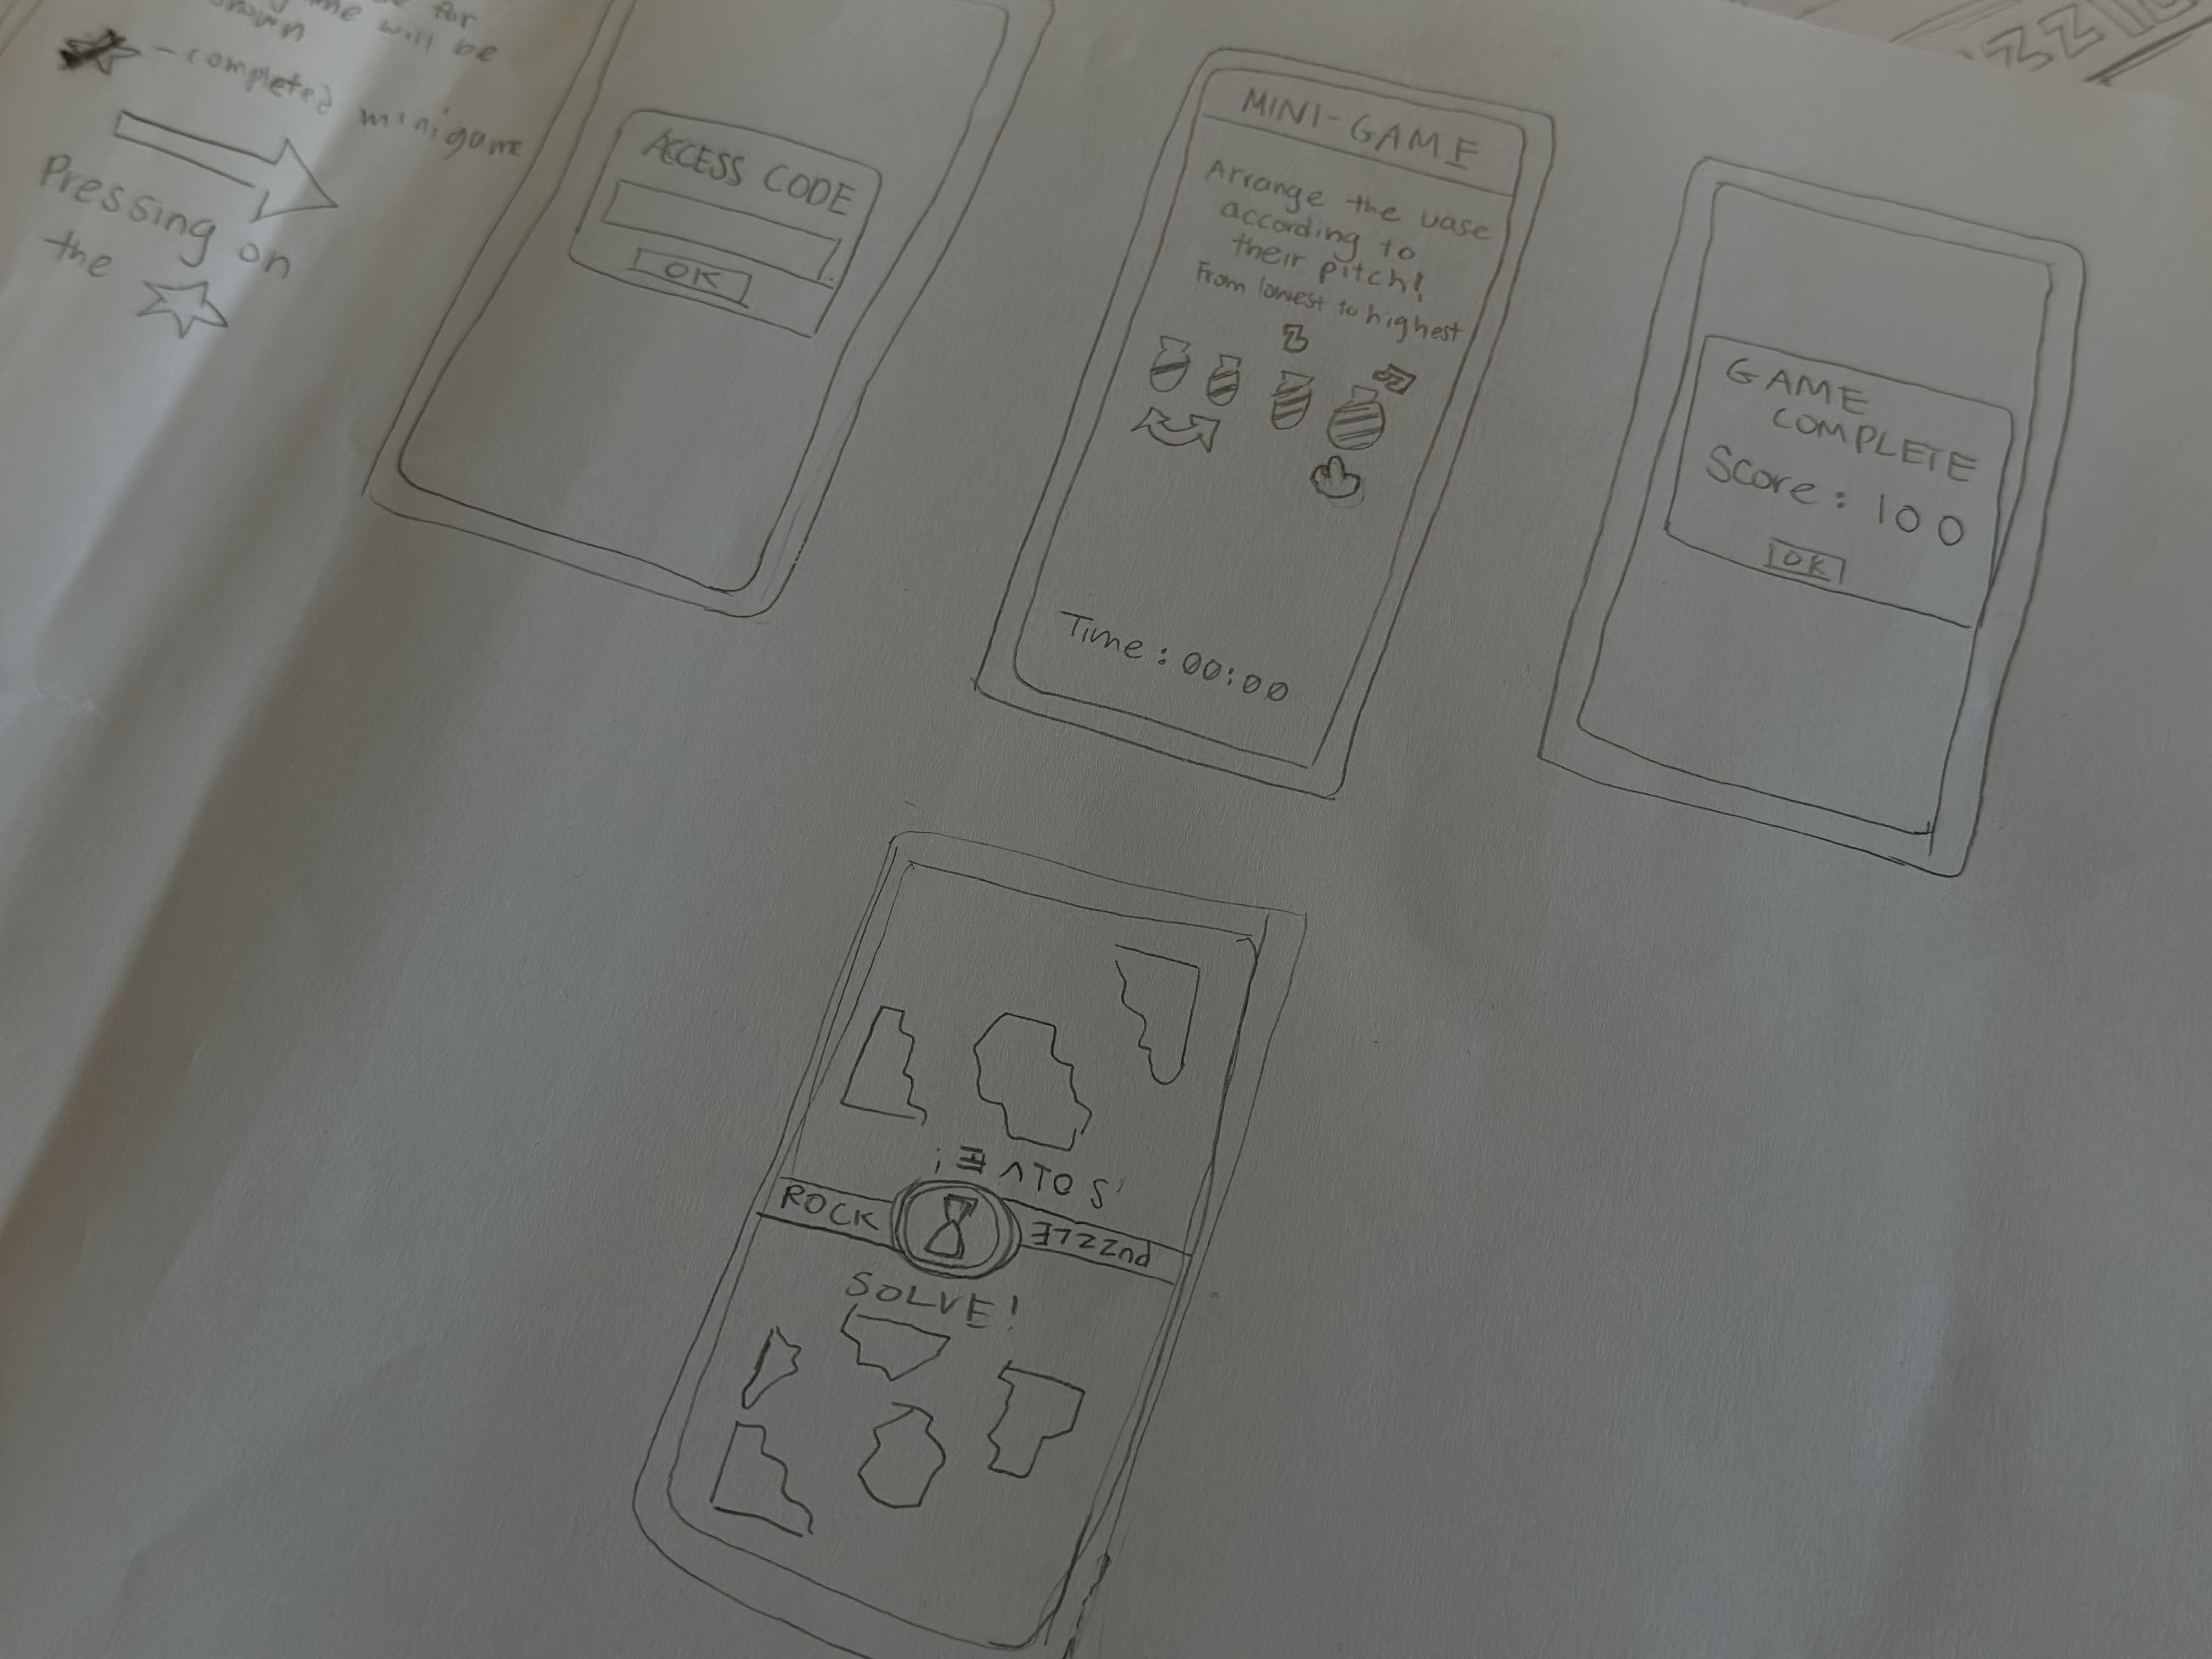 for
will be
- completed minigame
Pressing on
the
ACCESS CODE
OK
MINI-GAME
Arrange the vase
according to
their pitch!
From lowest to highest
Time: 00:00
GAME
COMPLETE
Score: 100
OK
SOLVE!
ROCK
PUZZLE
SOLVE!